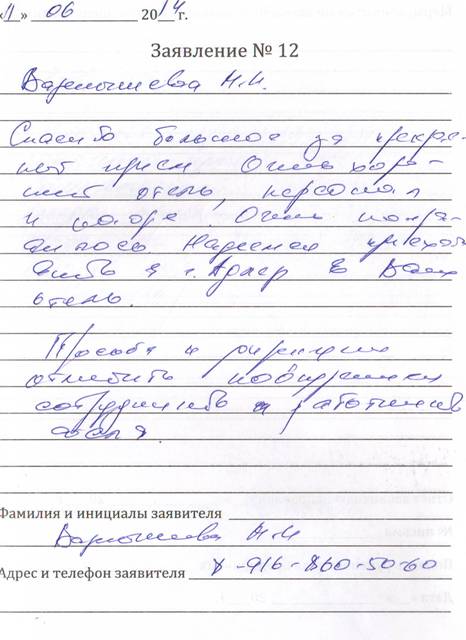 «11» 06 2014 г.
Заявление № 12
Н.И.
Спасибо большое за прекрас-
ный прием. Очень хоро-
ший отель, персонал
и море. Очень понра-
вилось. Надеемся приехать
в г. Адлер в Ваш
отель.
Просьба к дирекции
отметить
сотрудников и работников
отеля.
Фамилия и инициалы заявителя
Н.И
Адрес и телефон заявителя 8-916-860-50-60